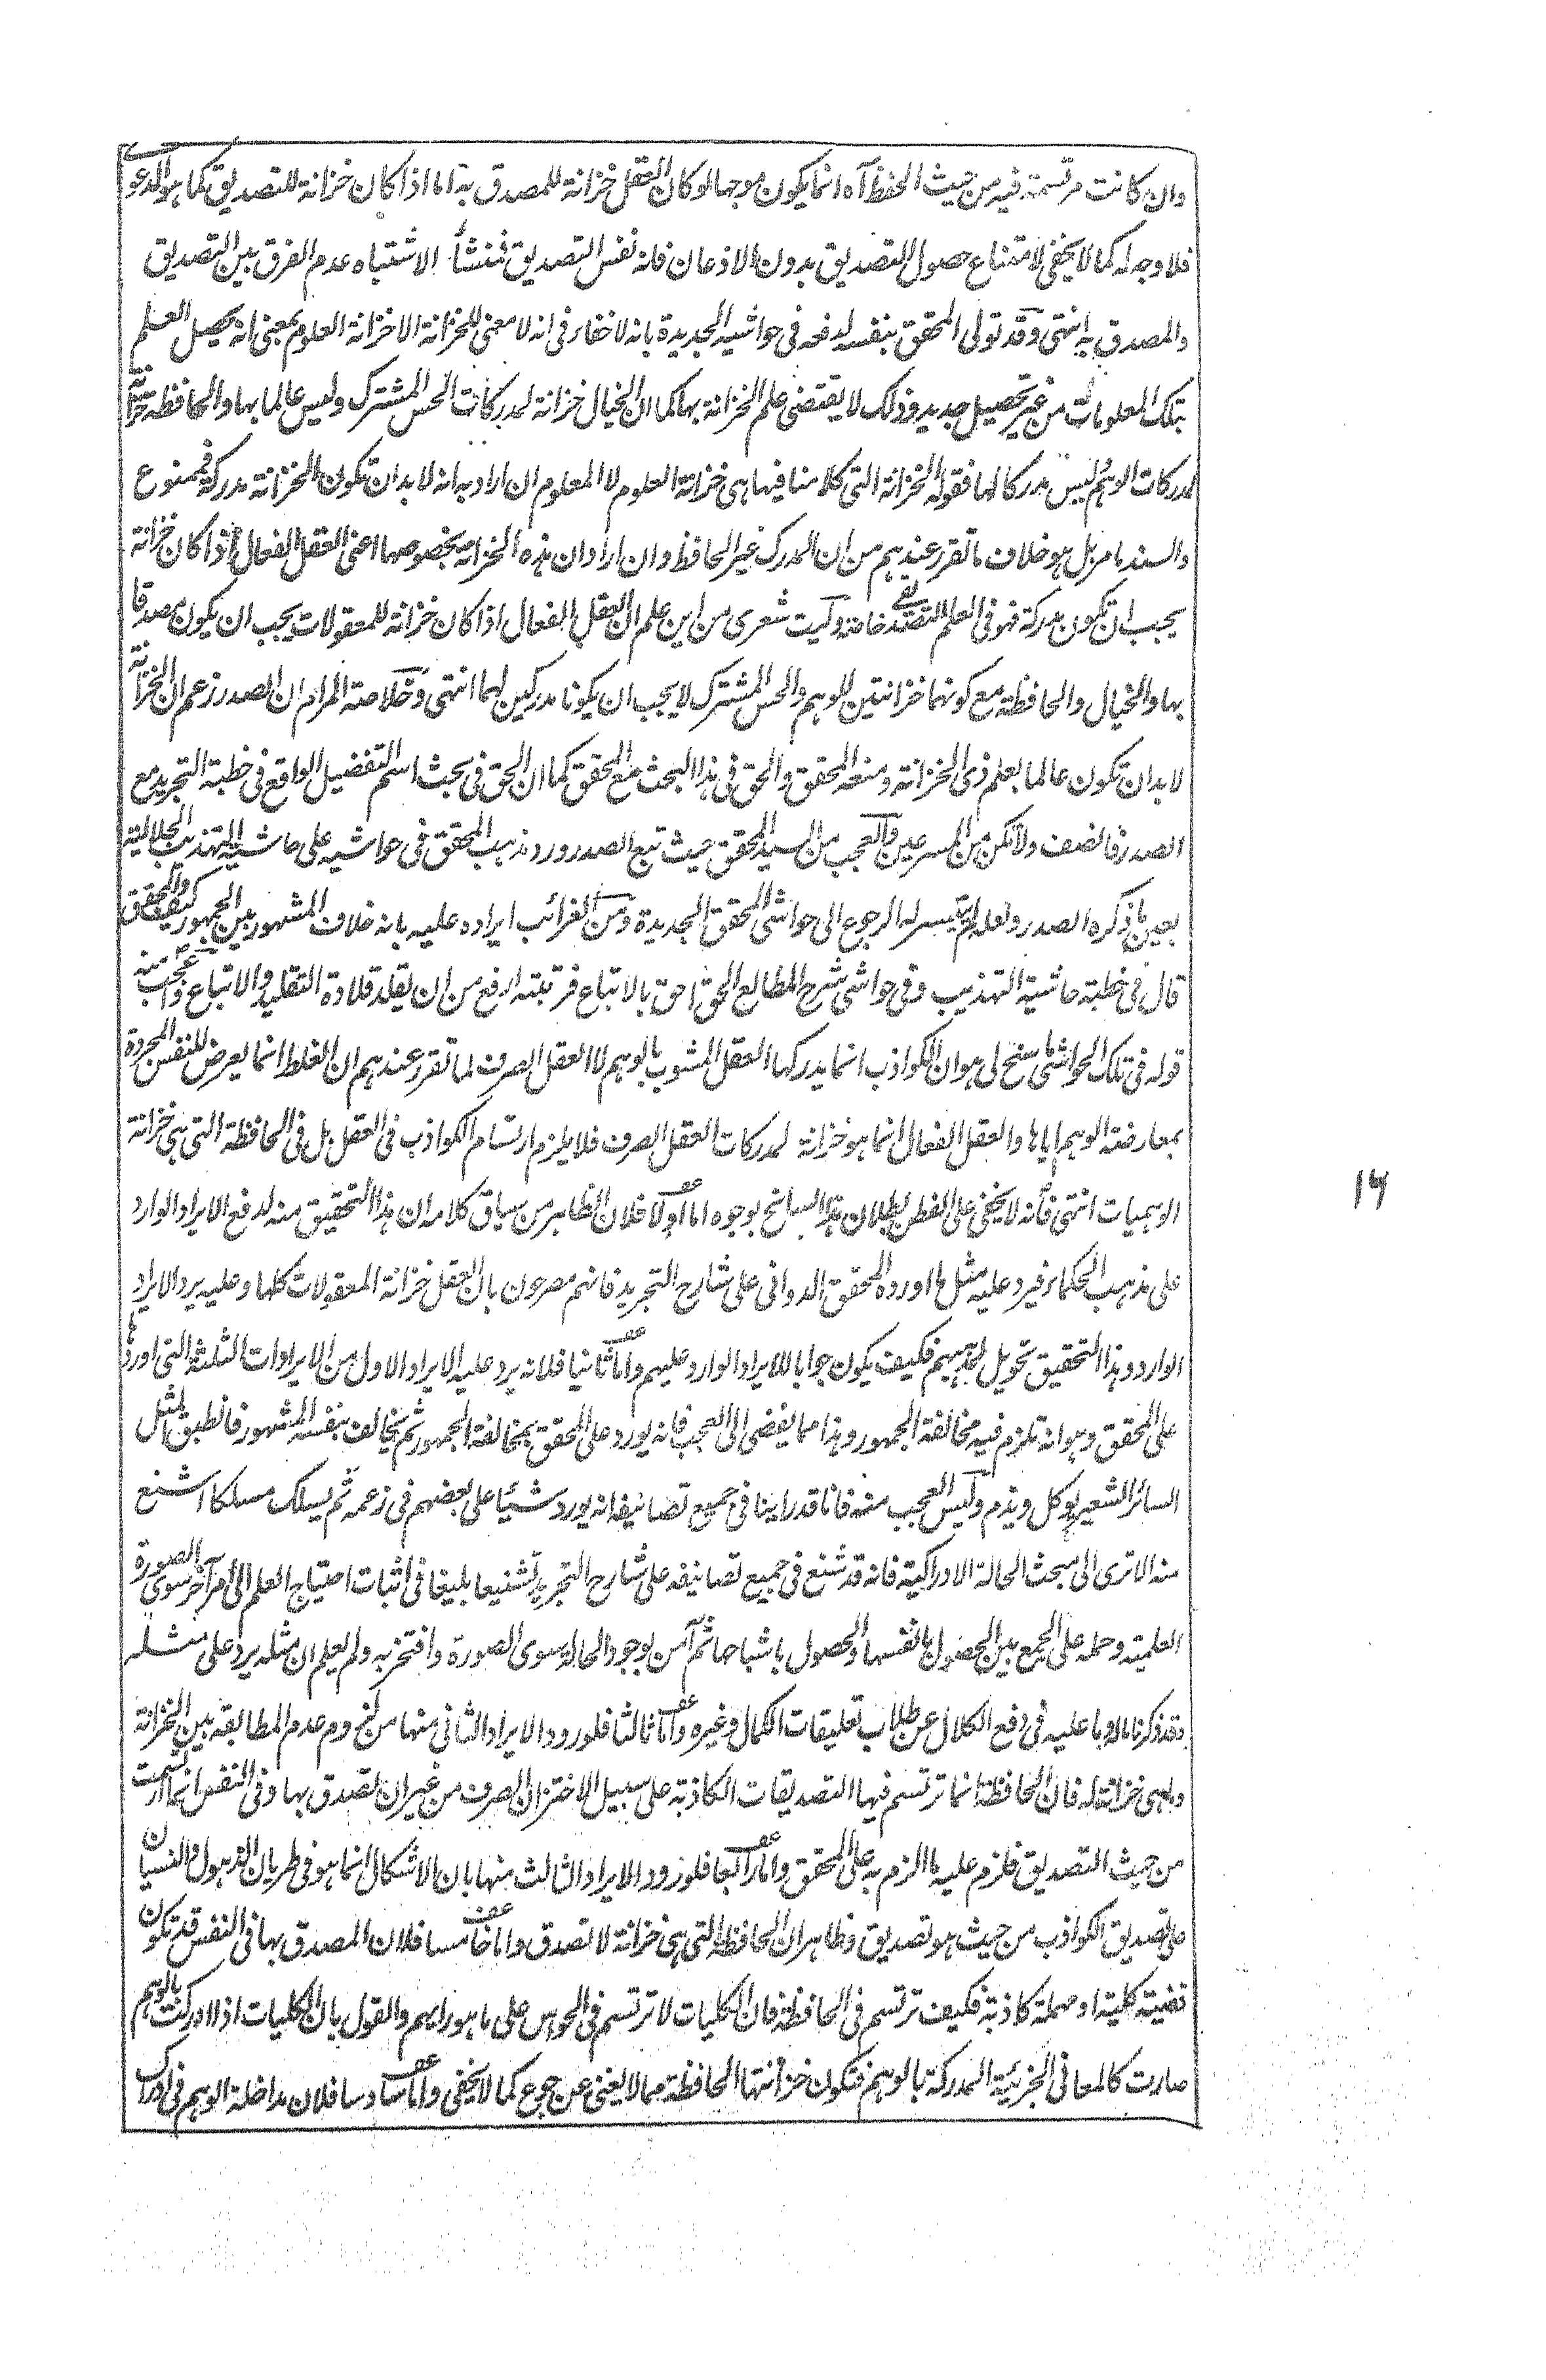 وان كانت مرتسمة فيه من حيث الحفظ آه انما يكون موجها لو كان العقل خزانة للمصدق به اما اذا كان خزانة للتصديق كما هو المدعو
فلا وجه له كما لا يخفى لامتناع حصول التصديق بدون الاذعان فانه نفس التصديق فمنشأ الاشتباه عدم الفرق بين التصديق
والمصدق به انتهى وقد تولى المحقق بنفسه لدفعه فى حواشيه الجديدة بانه لا خفاء فى انه لا معنى للخزانة الا خزانة العلوم بمعنى انه يحصل العلم
بتلك المعلومات من غير تحصيل جديد وذلك لا يقتضى علم الخزانة بها كما ان الخيال خزانة لمدركات الحس المشترك وليس عالما بها والحافظة خزانة
لمدركات الوهم ليس مدركا لها فقوله الخزانة التى كلامنا فيها هى خزانة العلوم لا المعلوم ان اراد به انه لا بد ان تكون الخزانة مدركة فممنوع
والسند ما مر بل هو خلاف ما تقرر عندهم من ان المدرك غير الحافظ وان اراد ان هذه الخزانة بخصوصها اعنى العقل الفعال اذا كان خزانة
يجب ان تكون مدركة فهو فى العلم التصديقى خاصة وليت شعرى من اين علم ان العقل الفعال اذا كان خزانة للمعقولات يجب ان يكون مصدقا
بها والخيال والحافظة مع كونهما خزانتين للوهم والحس المشترك لا يجب ان يكونا مدركين لهما انتهى وخلاصة المرام ان الصدر زعم ان الخزانة
لا بد ان تكون عالما بعلم ذى الخزانة ومنعه المحقق والحق فى هذا البحث مع المحقق كما ان الحق فى بحث اسم التفضيل الواقع فى خطبة التجريد مع
الصدر فانصف ولا تكن من المسرعين والعجب من السيد المحقق حيث تبع الصدر ورد مذهب المحقق فى حواشيه على حاشية التهذيب الجلالية
بعين ما ذكره الصدر ولعله لم يتيسر له الرجوع الى حواشى المحقق الجديدة ومن الغرائب ايراده عليه بانه خلاف المشهور بين الجمهور كيف والمحقق
قال فى خطبة حاشية التهذيب وفى حواشى شرح المطالع الحق احق بالاتباع فرتبته ارفع من ان يقلد قلادة التقليد والاتباع واعجب منه
قوله فى تلك الحواشى ما سنح لى هو ان الكواذب انما يدركها العقل المشوب بالوهم لا العقل الصرف لما تقرر عندهم ان الغلط انما يعرض للنفس المجردة
بمعارضة الوهم اياها والعقل الفعال انما هو خزانة لمدركات العقل الصرف فلا يلزم ارتسام الكواذب فى العقل بل فى الحافظة التى هى خزانة
الوهميات انتهى فانه لا يخفى على الفطن بطلان هذا السانح بوجوه اما اولا فلان الظاهر من سياق كلامه ان هذا التحقيق منه لدفع الايراد الوارد
على مذهب الحكماء فيرد عليه مثل ما اورده المحقق الدوانى على شارح التجريد فانهم مصرحون بان العقل خزانة المعقولات كلها وعليه يرد الايراد
الوارد وهذا التحقيق تحويل لمذهبهم فكيف يكون جوابا للايراد الوارد عليهم واما ثانيا فلانه يرد عليه الايراد الاول من الايرادات الثلثة التى اوردها
على المحقق وهو انه تلزم فيه مخالفة الجمهور وهذا مما يفضى الى العجب فانه يورد على المحقق بمخالفة الجمهور ثم يخالف بنفسه المشهور فانطبق المثل
السائر الشعير يوكل ويذم وليس العجب منه فانا قد راينا فى جميع تصانيفه انه يورد شيئا على بعضهم فى زعمه ثم يسلك مسلكا اشنع
منه الا ترى الى مبحث الحالة الادراكية فانه قد شنع فى جميع تصانيفه على شارح التجريد تشنيعا بليغا فى اثبات احتياج العلم الى امر آخر سوى الصورة
العلمية وحمله على الجمع بين الحصول بانفسها والحصول باشباحها ثم آمن بوجود الحالة سوى الصورة وافتخر به ولم يعلم ان مثله يرد على مثله
وقد ذكرنا ما له وما عليه فى دفع الكلال عن طلاب تعليقات الكمال وغيره واما ثالثا فلورود الايراد الثانى منها من لزوم عدم المطابقة بين الخزانة
وما هى خزانة له فان الحافظة انما ترتسم فيها التصديقات الكاذبة على سبيل الاختزان الصرف من غير ان تصدق بها وفى النفس انما ارتسمت
من حيث التصديق فلزم عليه ما الزم به على المحقق واما رابعا فلورود الايراد الثالث منها بان الاشكال انما هو فى طريان الذهول والنسيان
على تصديق الكواذب من حيث هو تصديق وظاهر ان الحافظة التى هى خزانة لا تصدق واما خامسا فلان المصدق بها فى النفس قد تكون
قضية كلية او مهملة كاذبة فكيف ترتسم فى الحافظة فان الكليات لا ترتسم فى الحواس على ما هو رايهم والقول بان الكليات اذا ادركت بالوهم
صارت كالمعانى الجزئية المدركة بالوهم فتكون خزانتها الحافظة مما لا يغنى عن جوع كما لا يخفى واما سادسا فلان مداخلة الوهم فى ادراك
١٦